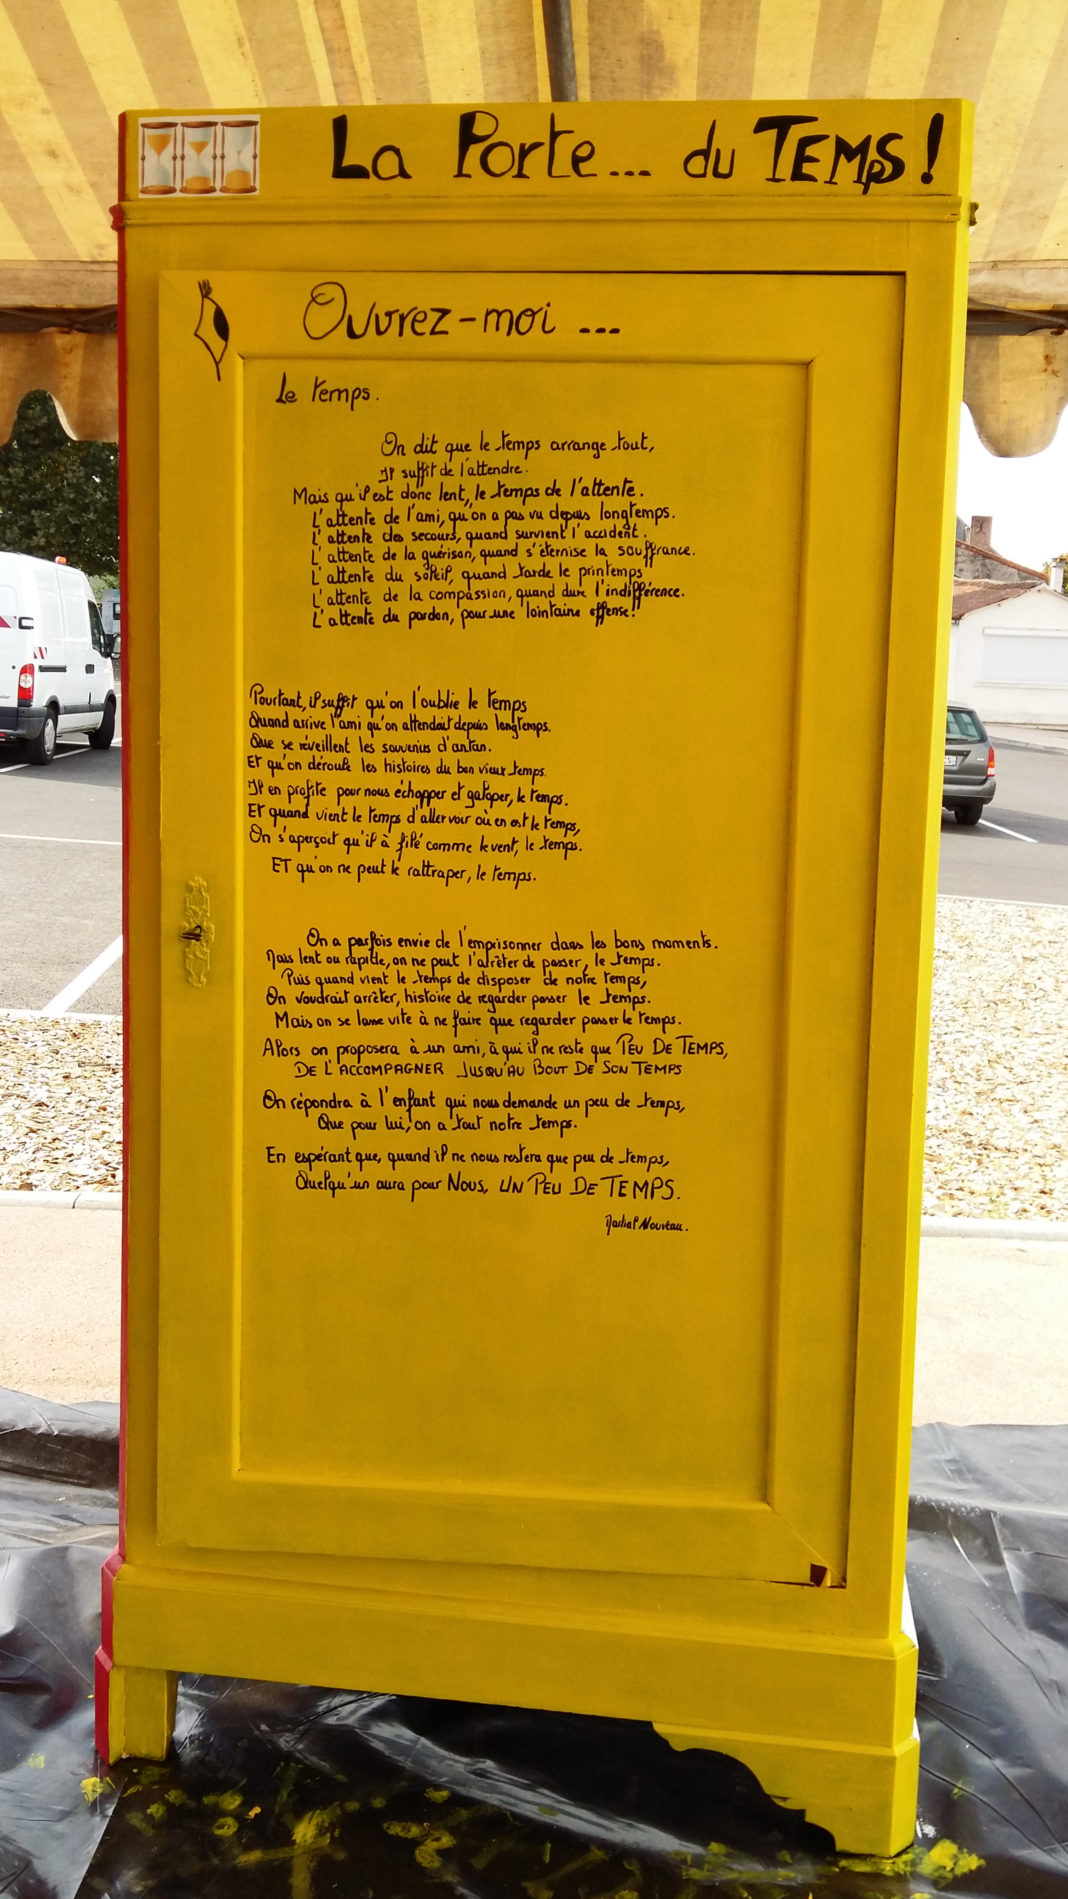 La Porte... du TEMpS !
Ouvrez-moi ...
Le temps.
On dit que le temps arrange tout,
Il suffit de l'attendre.
Mais qu'il est donc lent, le temps de l'attente.
L'attente de l'ami, qu'on a pas vu depuis longtemps.
L'attente des secours, quand survient l'accident.
L'attente de la guérison, quand s'éternise la souffrance.
L'attente du soleil, quand tarde le printemps
L'attente de la compassion, quand dure l'indifférence.
L'attente du pardon, pour une lointaine offense!
Pourtant, il suffit qu'on l'oublie le temps
Quand arrive l'ami qu'on attendait depuis longtemps.
Que se réveillent les souvenirs d'antan.
Et qu'on déroule les histoires du bon vieux temps.
Il en profite pour nous échapper et galoper, le temps.
Et quand vient le temps d'aller voir où en est le temps,
On s'aperçoit qu'il à filé comme le vent, le temps.
ET qu'on ne peut le rattraper, le temps.
On a parfois envie de l'emprisonner dans les bons moments.
Mais lent ou rapide, on ne peut l'arrêter de passer, le temps.
Puis quand vient le temps de disposer de notre temps,
On voudrait arrêter, histoire de regarder passer le temps.
Mais on se lasse vite à ne faire que regarder passer le temps.
Alors on proposera à un ami, à qui il ne reste que PEU DE TEMPS,
DE L'ACCOMPAGNER JUSQU'AU BOUT DE SON TEMPS
On répondra à l'enfant qui nous demande un peu de temps,
Que pour lui, on a tout notre temps.
En espérant que, quand il ne nous restera que peu de temps,
Quelqu'un aura pour NOUS, UN PEU DE TEMPS.
Martial Nouveau.